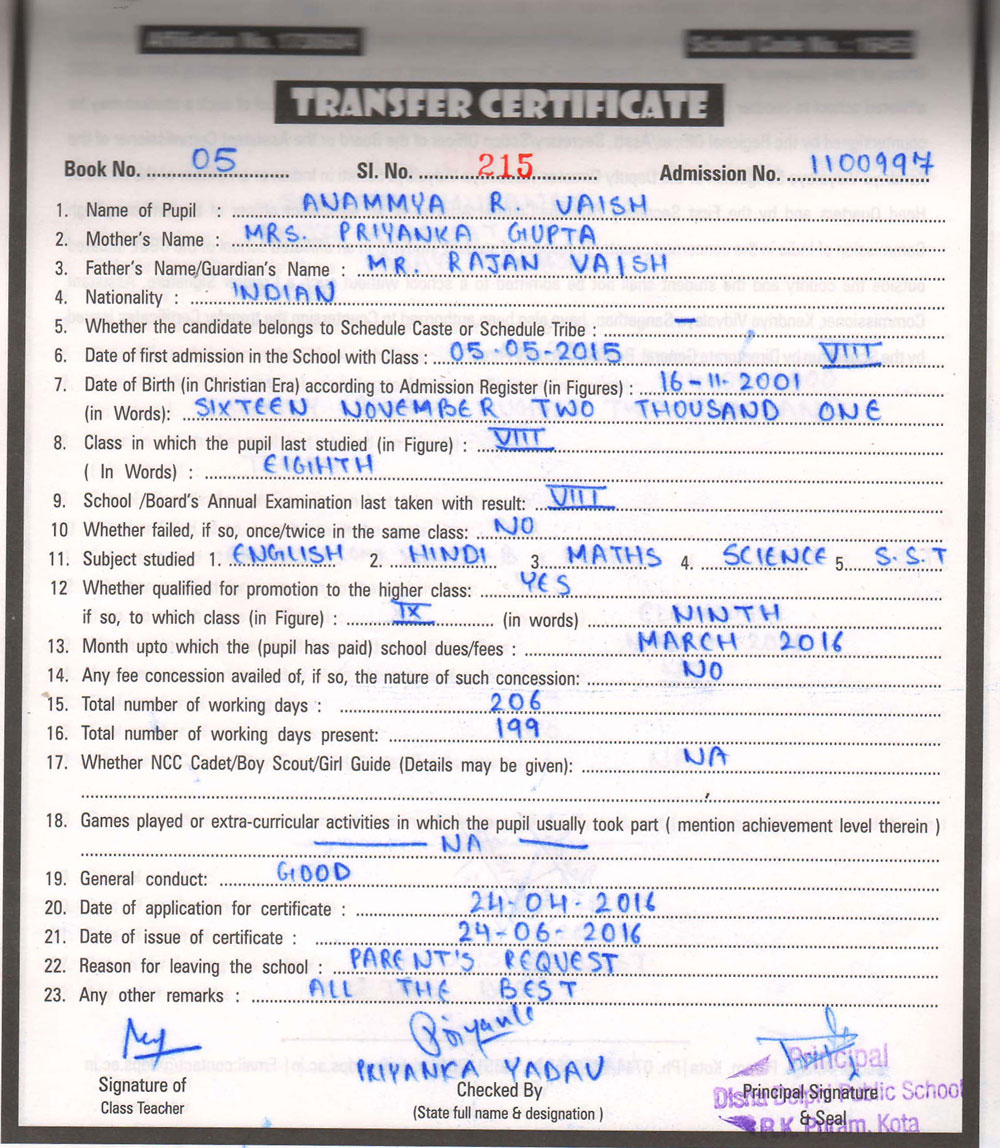 TRANSFER CERTIFICATE
Book No. 05 Sl. No. 215 Admission No. 1100997
1. Name of Pupil : ANAMMYA R. VAISH
2. Mother's Name : MRS. PRIYANKA GUPTA
3. Father's Name/Guardian's Name : MR. RAJAN VAISH
4. Nationality : INDIAN
5. Whether the candidate belongs to Schedule Caste or Schedule Tribe : –
6. Date of first admission in the School with Class : 05-05-2015 VIII
7. Date of Birth (in Christian Era) according to Admission Register (in Figures) : 16-11-2001
(in Words): SIXTEEN NOVEMBER TWO THOUSAND ONE
8. Class in which the pupil last studied (in Figure) : VIII
( In Words) : EIGIHTH
9. School /Board's Annual Examination last taken with result: VIII
10 Whether failed, if so, once/twice in the same class: NO
11. Subject studied 1. ENGLISH 2. HINDI 3. MATHS 4. SCIENCE 5. S.S.T
12 Whether qualified for promotion to the higher class: YES
if so, to which class (in Figure) : IX (in words) NINTH
13. Month upto which the (pupil has paid) school dues/fees : MARCH 2016
14. Any fee concession availed of, if so, the nature of such concession: NO
15. Total number of working days : 206
16. Total number of working days present: 199
17. Whether NCC Cadet/Boy Scout/Girl Guide (Details may be given): NA
18. Games played or extra-curricular activities in which the pupil usually took part ( mention achievement level therein )
NA
19. General conduct: GOOD
20. Date of application for certificate : 24-04-2016
21. Date of issue of certificate : 24-06-2016
22. Reason for leaving the school : PARENT'S REQUEST
23. Any other remarks : ALL THE BEST
Priyanka
PRIYANKA YADAV
Signature of
Class Teacher
Checked By
(State full name & designation )
Principal
Principal Signature
& Seal
Disha Delphi Public School
R.K. Puram, Kota